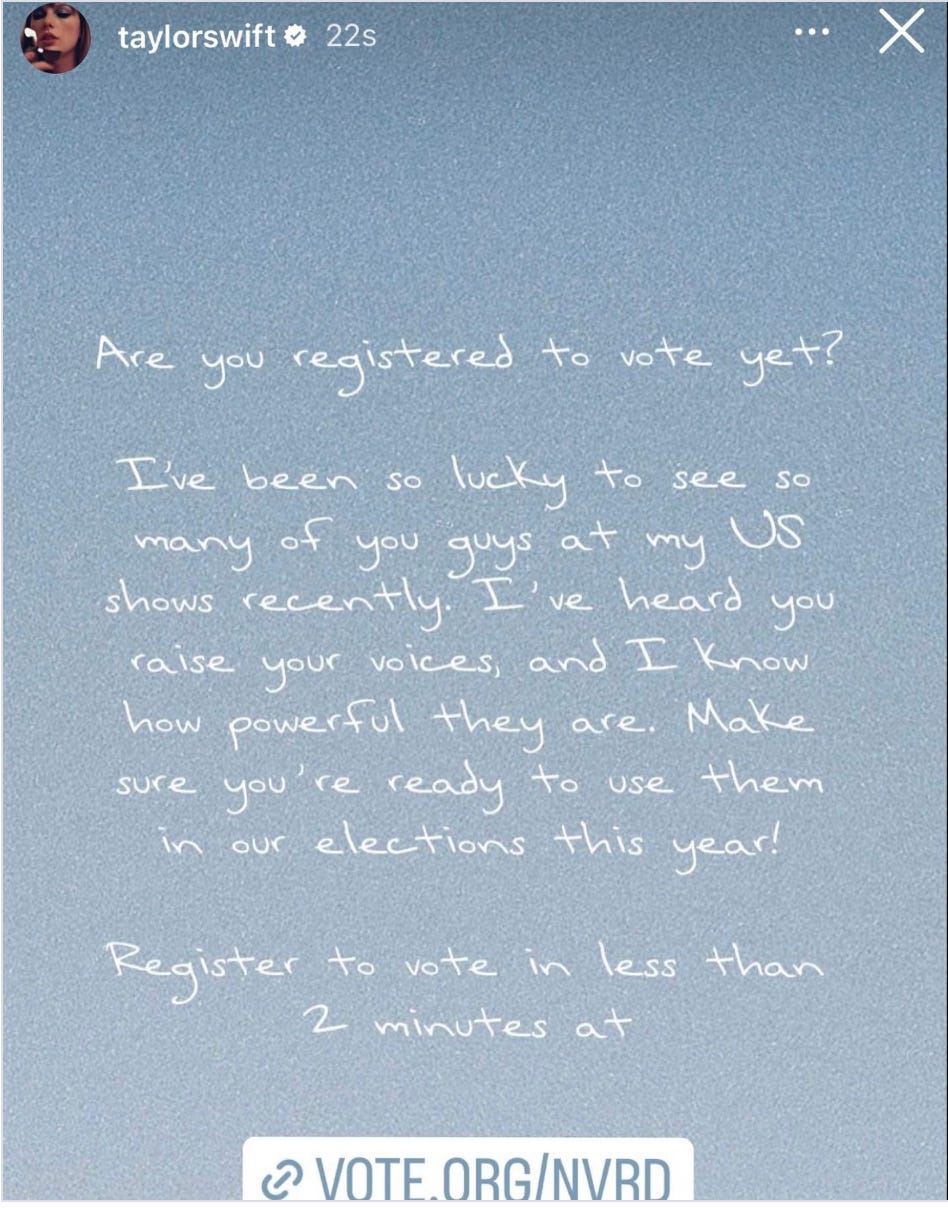 taylorswift 22s
Are you registered to vote yet?
I've been so lucky to see so
many of you guys at my US
shows recently. I've heard you
raise your voices, and I know
how powerful they are. Make
sure you're ready to use them
in our elections this year!
Register to vote in less than
2 minutes at
VOTE.ORG/NVRD